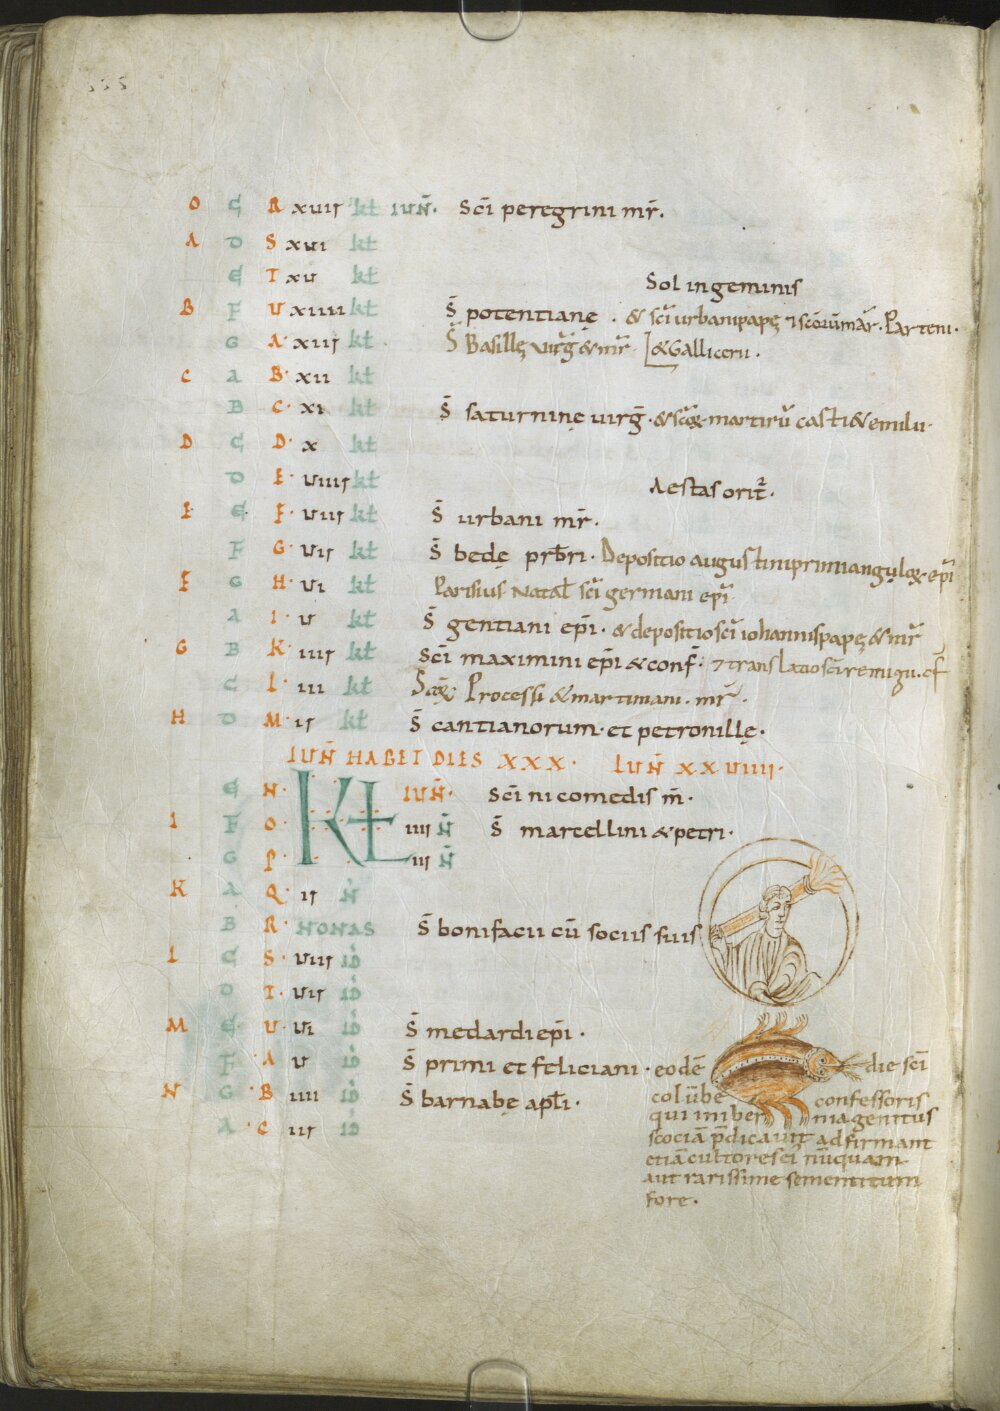 O C R xvii kł IUN̄. Sc̄i peregrini mr̄.
A D S xvi kł
E T xv kł Sol in geminis
B F U xiiii kł S̄ potentianę . & sc̄i urbani papę ⁊ sc̄orū mar̄. Parteni.
G A xiii kł S̄ Basillę virḡ & mr̄ & Gallicerii.
C a B xii kł
B C xi kł S̄ saturninę uirḡ. & sc̄oꝝ martirū casti & emilii.
D C D x kł
D E viiii kł Aestas orit̄.
E E F viii kł S̄ urbani mr̄.
F G vii kł S̄ bedę prb̄ri. Depositio augustini primi anguloꝝ epi
F G H vi kł Parisius Natał sc̄i germani ep̄i
a I v kł S̄ gentiani ep̄i. & depositio sc̄i iohannis papę & mr̄
G B K iiii kł Sc̄i maximini ep̄i & conf̄. ⁊ translatio sc̄i remigii. cf̄
C L iii kł Sc̄oꝝ Processi & martiniani. mr̄.
H D M ii kł S̄ cantianorum. et petronillę.
IUN̄ HABET DIES XXX. LUN̄ XXVIIII.
E N KŁ IUN̄. Sc̄i nicomedis m̄.
I F O iiii N̄ S̄ marcellini & petri.
G P iii N̄
K A Q ii N̄
B R NONAS S̄ bonifacii cū sociis suis
L C S viii id
D T vii id
M E U vi id S̄ medardi ep̄i.
F A v id S̄ primi et feliciani. eodē die sc̄i
N G B iiii id S̄ barnabe apłi. colūbe confessoris
qui in iber nia genitus
A C iii id scociā p̄dicauit adfirmant
etiā cultores ei nūquam
aut rarissime sementitum
fore.